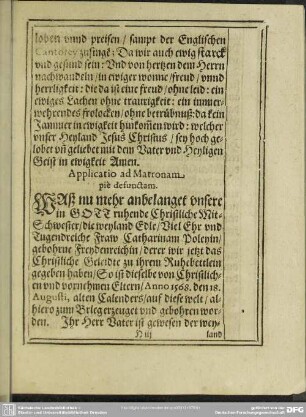 loben vnnd preisen / sampt der Englischen
Cantorey zusinge: Da wir auch ewig starck
vnd gesund sein: Vnd von hertzen dem Herrn
nachwandeln / in ewiger wonne / freud / vnnd
herrligkeit: die da ist eine freud / ohne leid: ein
ewiges Lachen ohne traurigkeit: ein immer-
wehrendes frolocken / ohne betrübnuß: da kein
Jammer in ewigkeit hinkomen wird: welcher
vnser Heyland Jesus Christus / sey hoch ge-
lobet vn geliebet mit dem Vater vnd Heyligen
Geist in ewigkeit Amen.
Applicatio ad Matronam
piè defunctam.
WAß nu mehr anbelanget vnsere
in GOTT ruhende Christliche Mit-
Schwester / die weyland Edle / Viel Ehr vnd
Tugendreiche Fraw Catharinam Poleyin /
gebohrne Freydenreichin / derer wir jetzt das
Christliche Geleidte zu ihrem Ruhebettlein
gegeben haben / So ist dieselbe von Christlich-
en vnd vornehmen Eltern / Anno 1568. den 18.
Augusti, alten Calenders / auf diese welt / al-
hiero zum Brieg erzeuget vnd gebohren wor-
den. Ihr Herr Vater ist gewesen der wey-
land